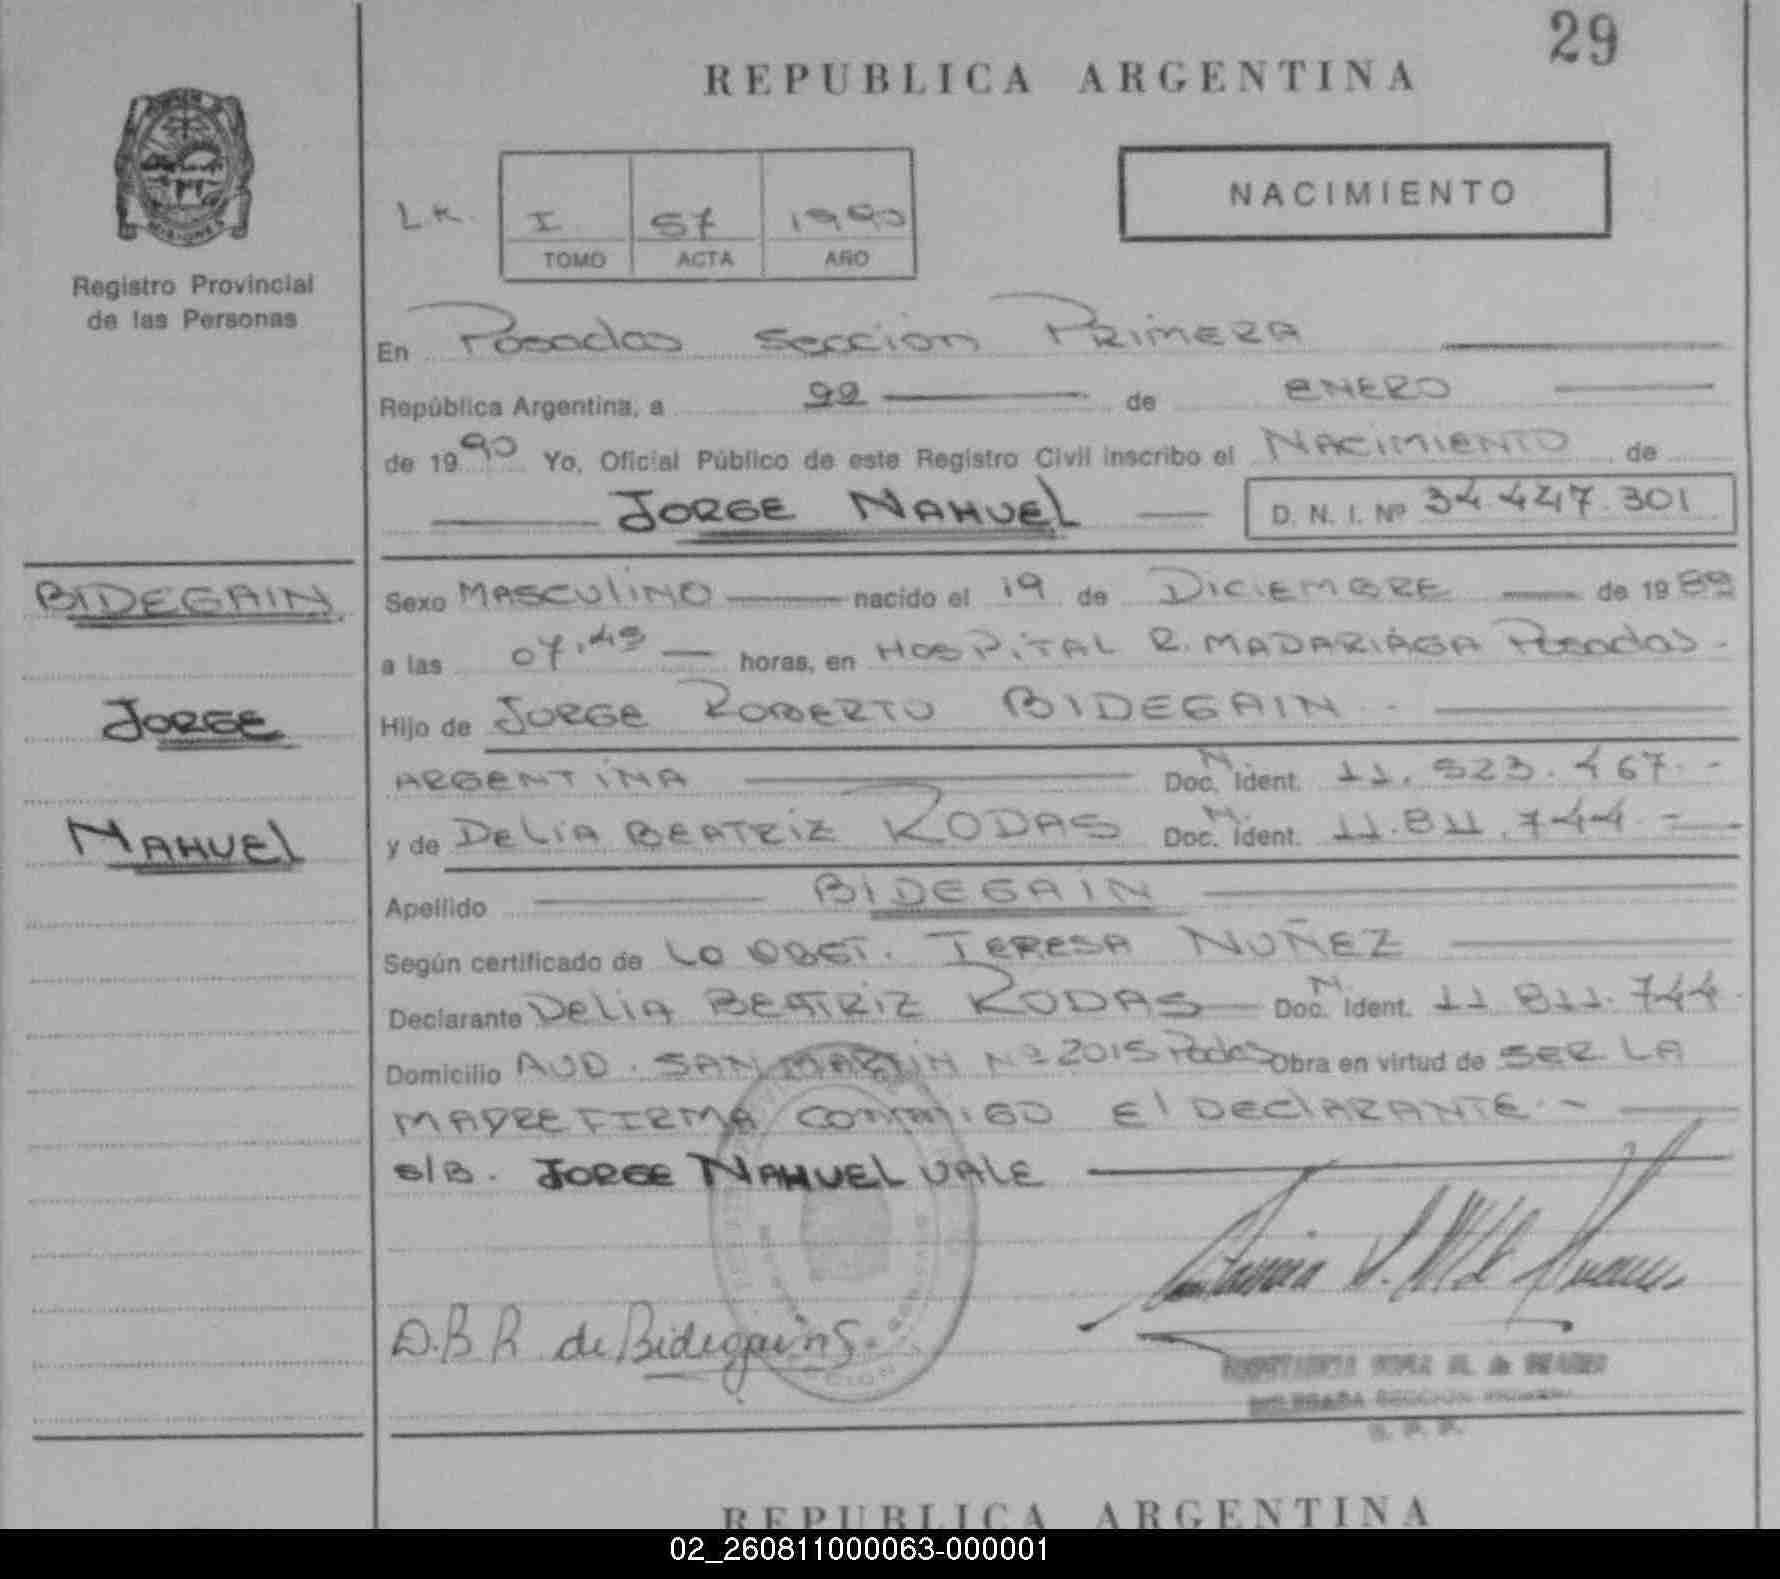 29
REPUBLICA ARGENTINA
NACIMIENTO
L.K. I 57 1990
TOMO ACTA AÑO
MISIONES
Registro Provincial
de las Personas
En Posadas Seccion PRIMERA
República Argentina, a 22 de ENERO
de 1990 Yo, Oficial Público de este Registro Civil inscribo el NACIMIENTO de
JORGE NAHUEL D. N. I. Nº 34.447.301
BIDEGAIN
JORGE
NAHUEL
Sexo MASCULINO nacido el 19 de DICIEMBRE de 1989
a las 07,45 horas, en HOSPITAL R. MADARIAGA Posadas.
Hijo de JORGE ROBERTO BIDEGAIN
ARGENTINA Doc. N. Ident. 11.523.467.-
y de DELIA BEATRIZ RODAS Doc. N. Ident. 11.811.744.-
Apellido BIDEGAIN
Según certificado de LO OBST. TERESA NUÑEZ
Declarante DELIA BEATRIZ RODAS Doc. N. Ident. 11 811.744.
Domicilio AVD. SAN MARTIN Nº 2015 Pdas Obra en virtud de SER LA
MADRE FIRMA CONMIGO El DEClARANTE.-
s/B. JORGE NAHUEL VALE
D.B R de Bidegain
REPUBLICA ARGENTINA
02_260811000063-000001